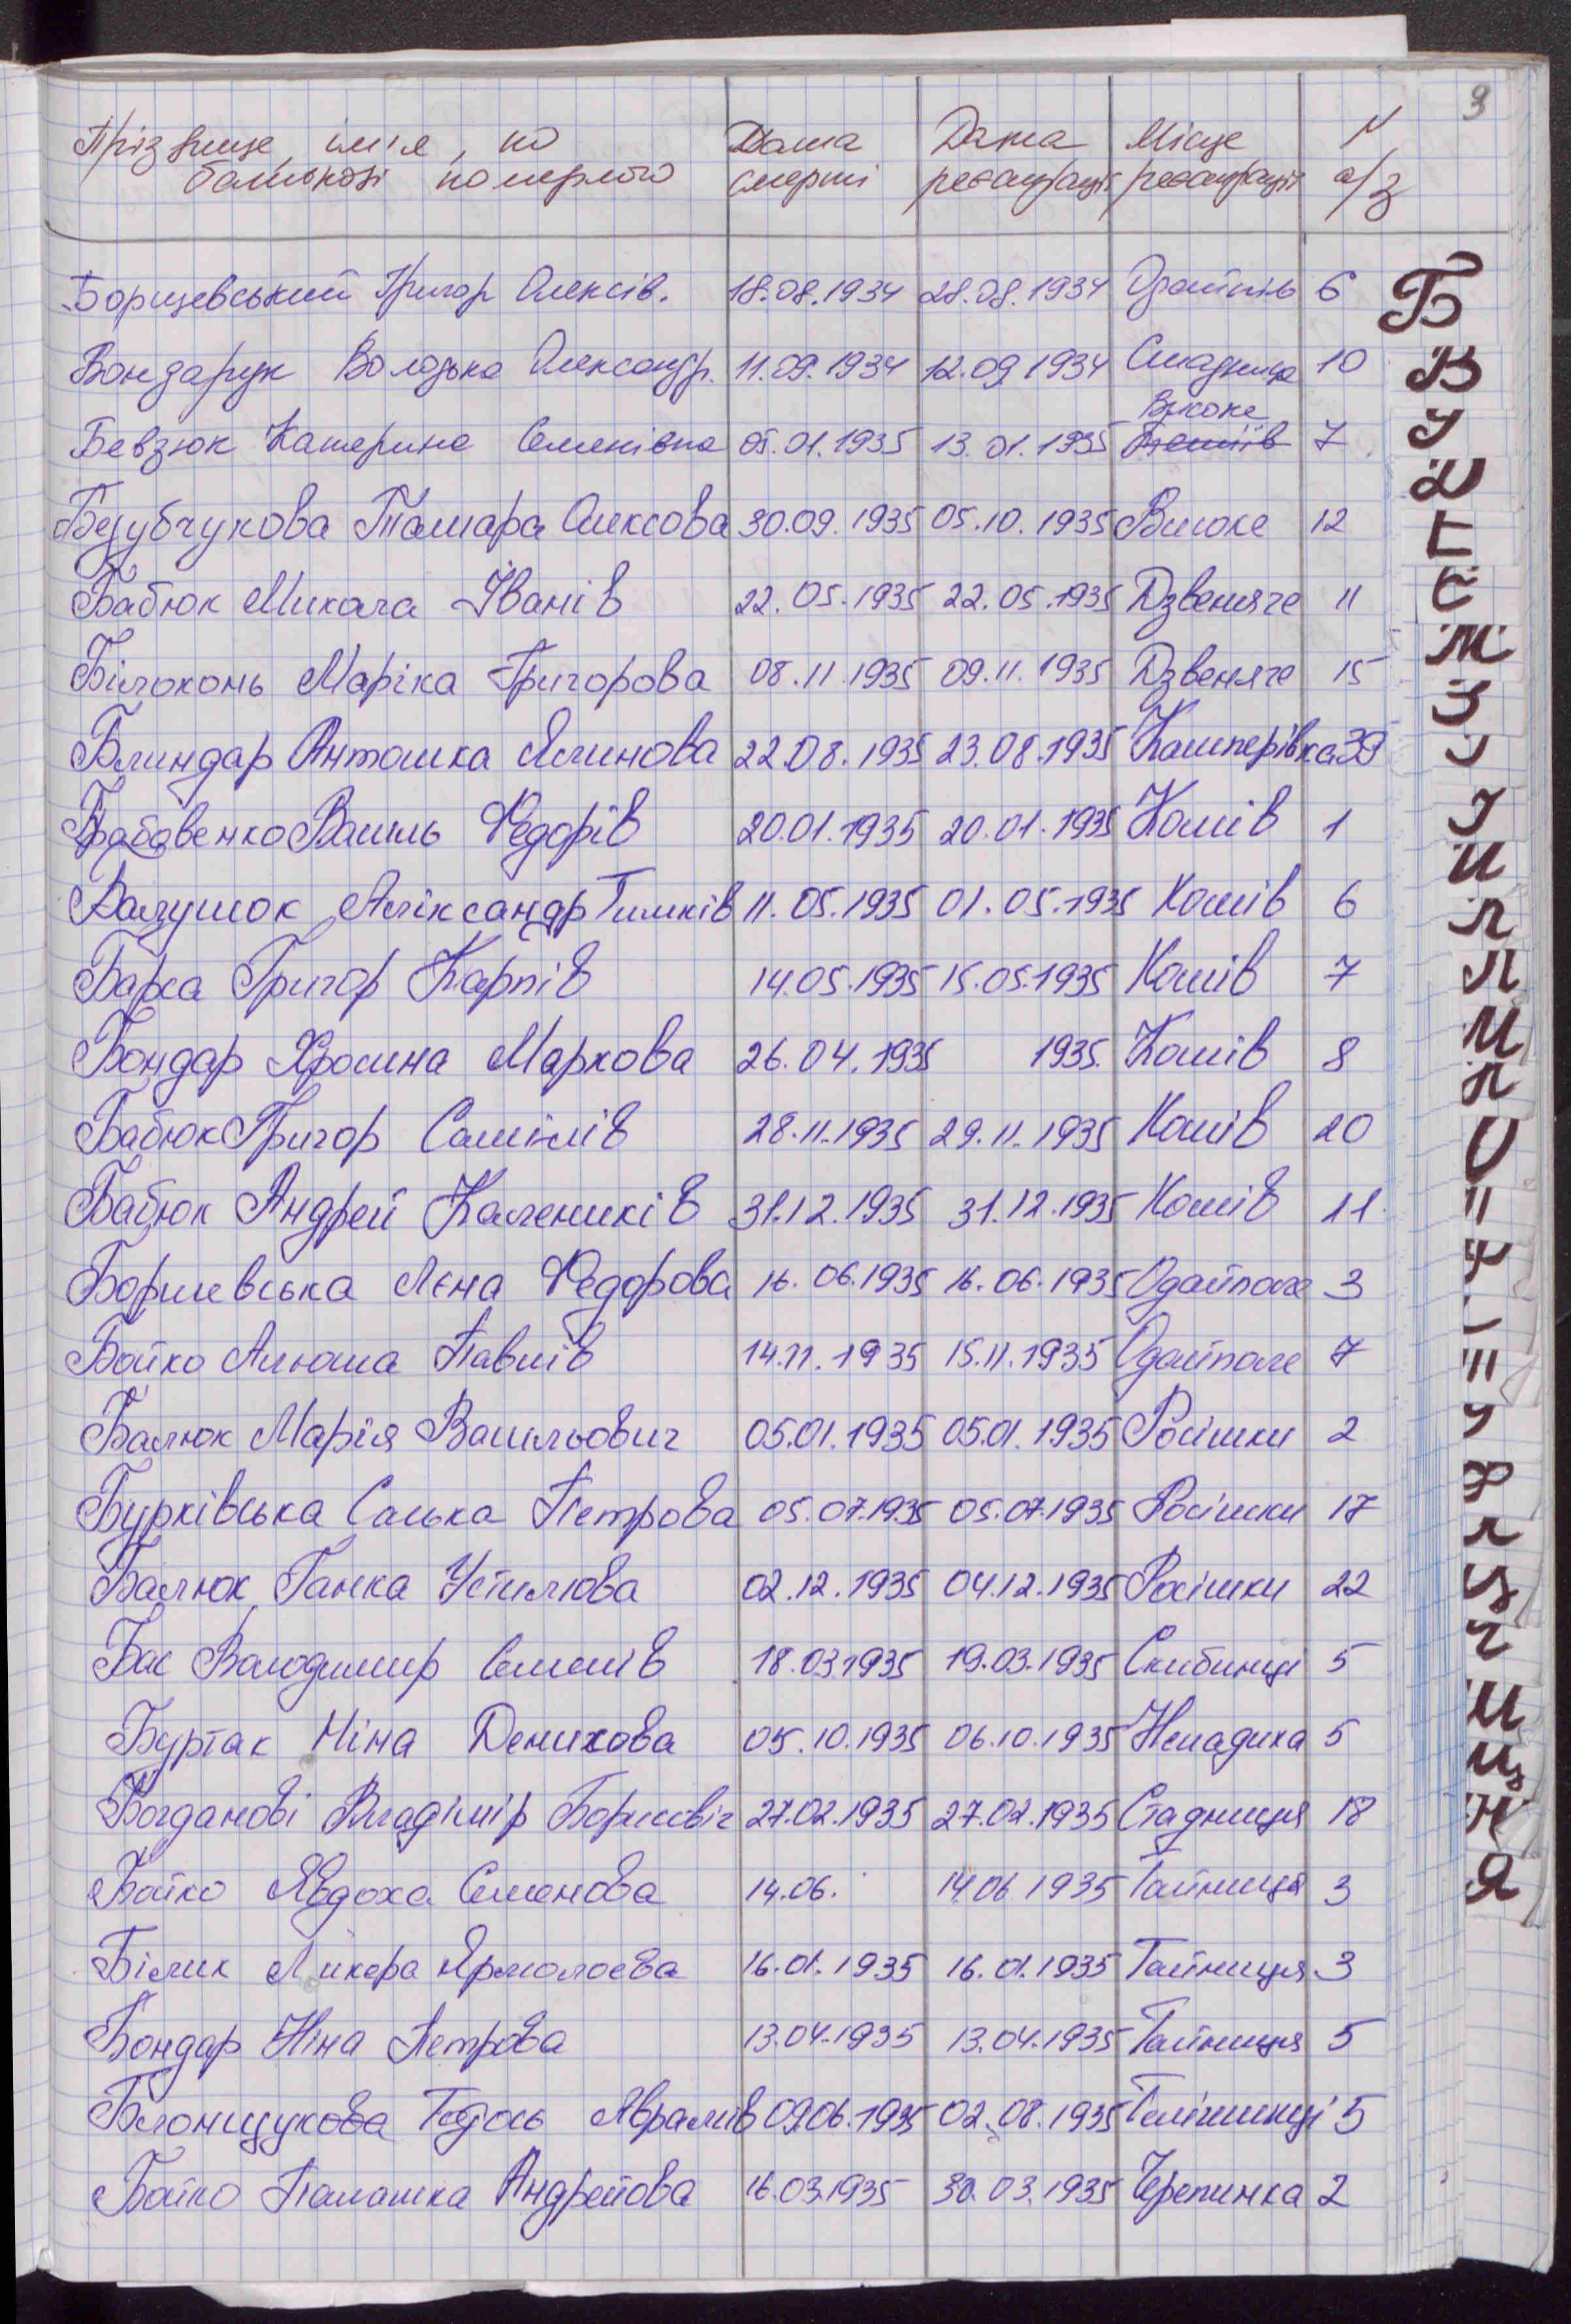 9
Прізвище, ім'я, по Дата Дата Місце N
батькові померлого смерті реєстрації реєстрації а/з
Борщевський Григор Олексів. 18.08.1934 28.08.1934 6
Бондарук Володька Олександр. 11.09.1934 12.09.1934 Стадниця 10
Високе
Бевзюк Катерина Семенівна 05.01.1935 13.01.1935 7
Бузубчукова Тамара Олексова 30.09.1935 05.10.1935 Високе 12
Бабюк Микола Іванів 22.05.1935 22.05.1935 Дзвеняче 11
Білоконь Маріка Григорова 08.11.1935 09.11.1935 Дзвеняче 15
Блиндар Антошка Якимова 22.08.1935 23.08.1935 Кашперівка 39
Бабовенко Василь Федорів 20.01.1935 20.01.1935 Кошів 1
Балушок Аліксандр Тимків 11.05.1935 01.05.1935 Кошів 6
Барка Григор Карпів 14.05.1935 15.05.1935 Кошів 7
Бондар Хросина Маркова 26.04.1935 1935. Кошів 8
Бабюк Григор Самійлів 28.11.1935 29.11.1935 Кошів 20
Бабюк Андрей Калеників 31.12.1935 31.12.1935 Кошів 11
Боршевська Лєна Федорова 16.06.1935 16.06.1935 Одайполе 3
Бойко Альоша Павлів 14.11.1935 15.11.1935 Одайполе 7
Балюк Марія Васильович 05.01.1935 05.01.1935 Росішки 2
Бурківська Санька Петрова 05.07.1935 05.07.1935 Росішки 17
Балюк Ганка Устимова 02.12.1935 04.12.1935 Росішки 22
Бас Володимир Семенів 18.03.1935 19.03.1935 Скибинці 5
Буртак Ніна Денихова 05.10.1935 06.10.1935 Ненадиха 5
Богданові Владімір Борисовіч 27.02.1935 27.02.1935 Стадниця 18
Бойко Явдоха Семенова 14.06. 14.06.1935 Тайниця 3
Білик Ликера Ярмолоєва 16.01.1935 16.01.1935 Тайниця 3
Бондар Ніна Петрова 13.04.1935 13.04.1935 Тайниця 5
Блонщукова Тодось Аврамів 09.06.1935 02.08.1935 Телішинці 5
Бойко Палашка Андрейова 16.03.1935 30.03.1935 Черепинка 2